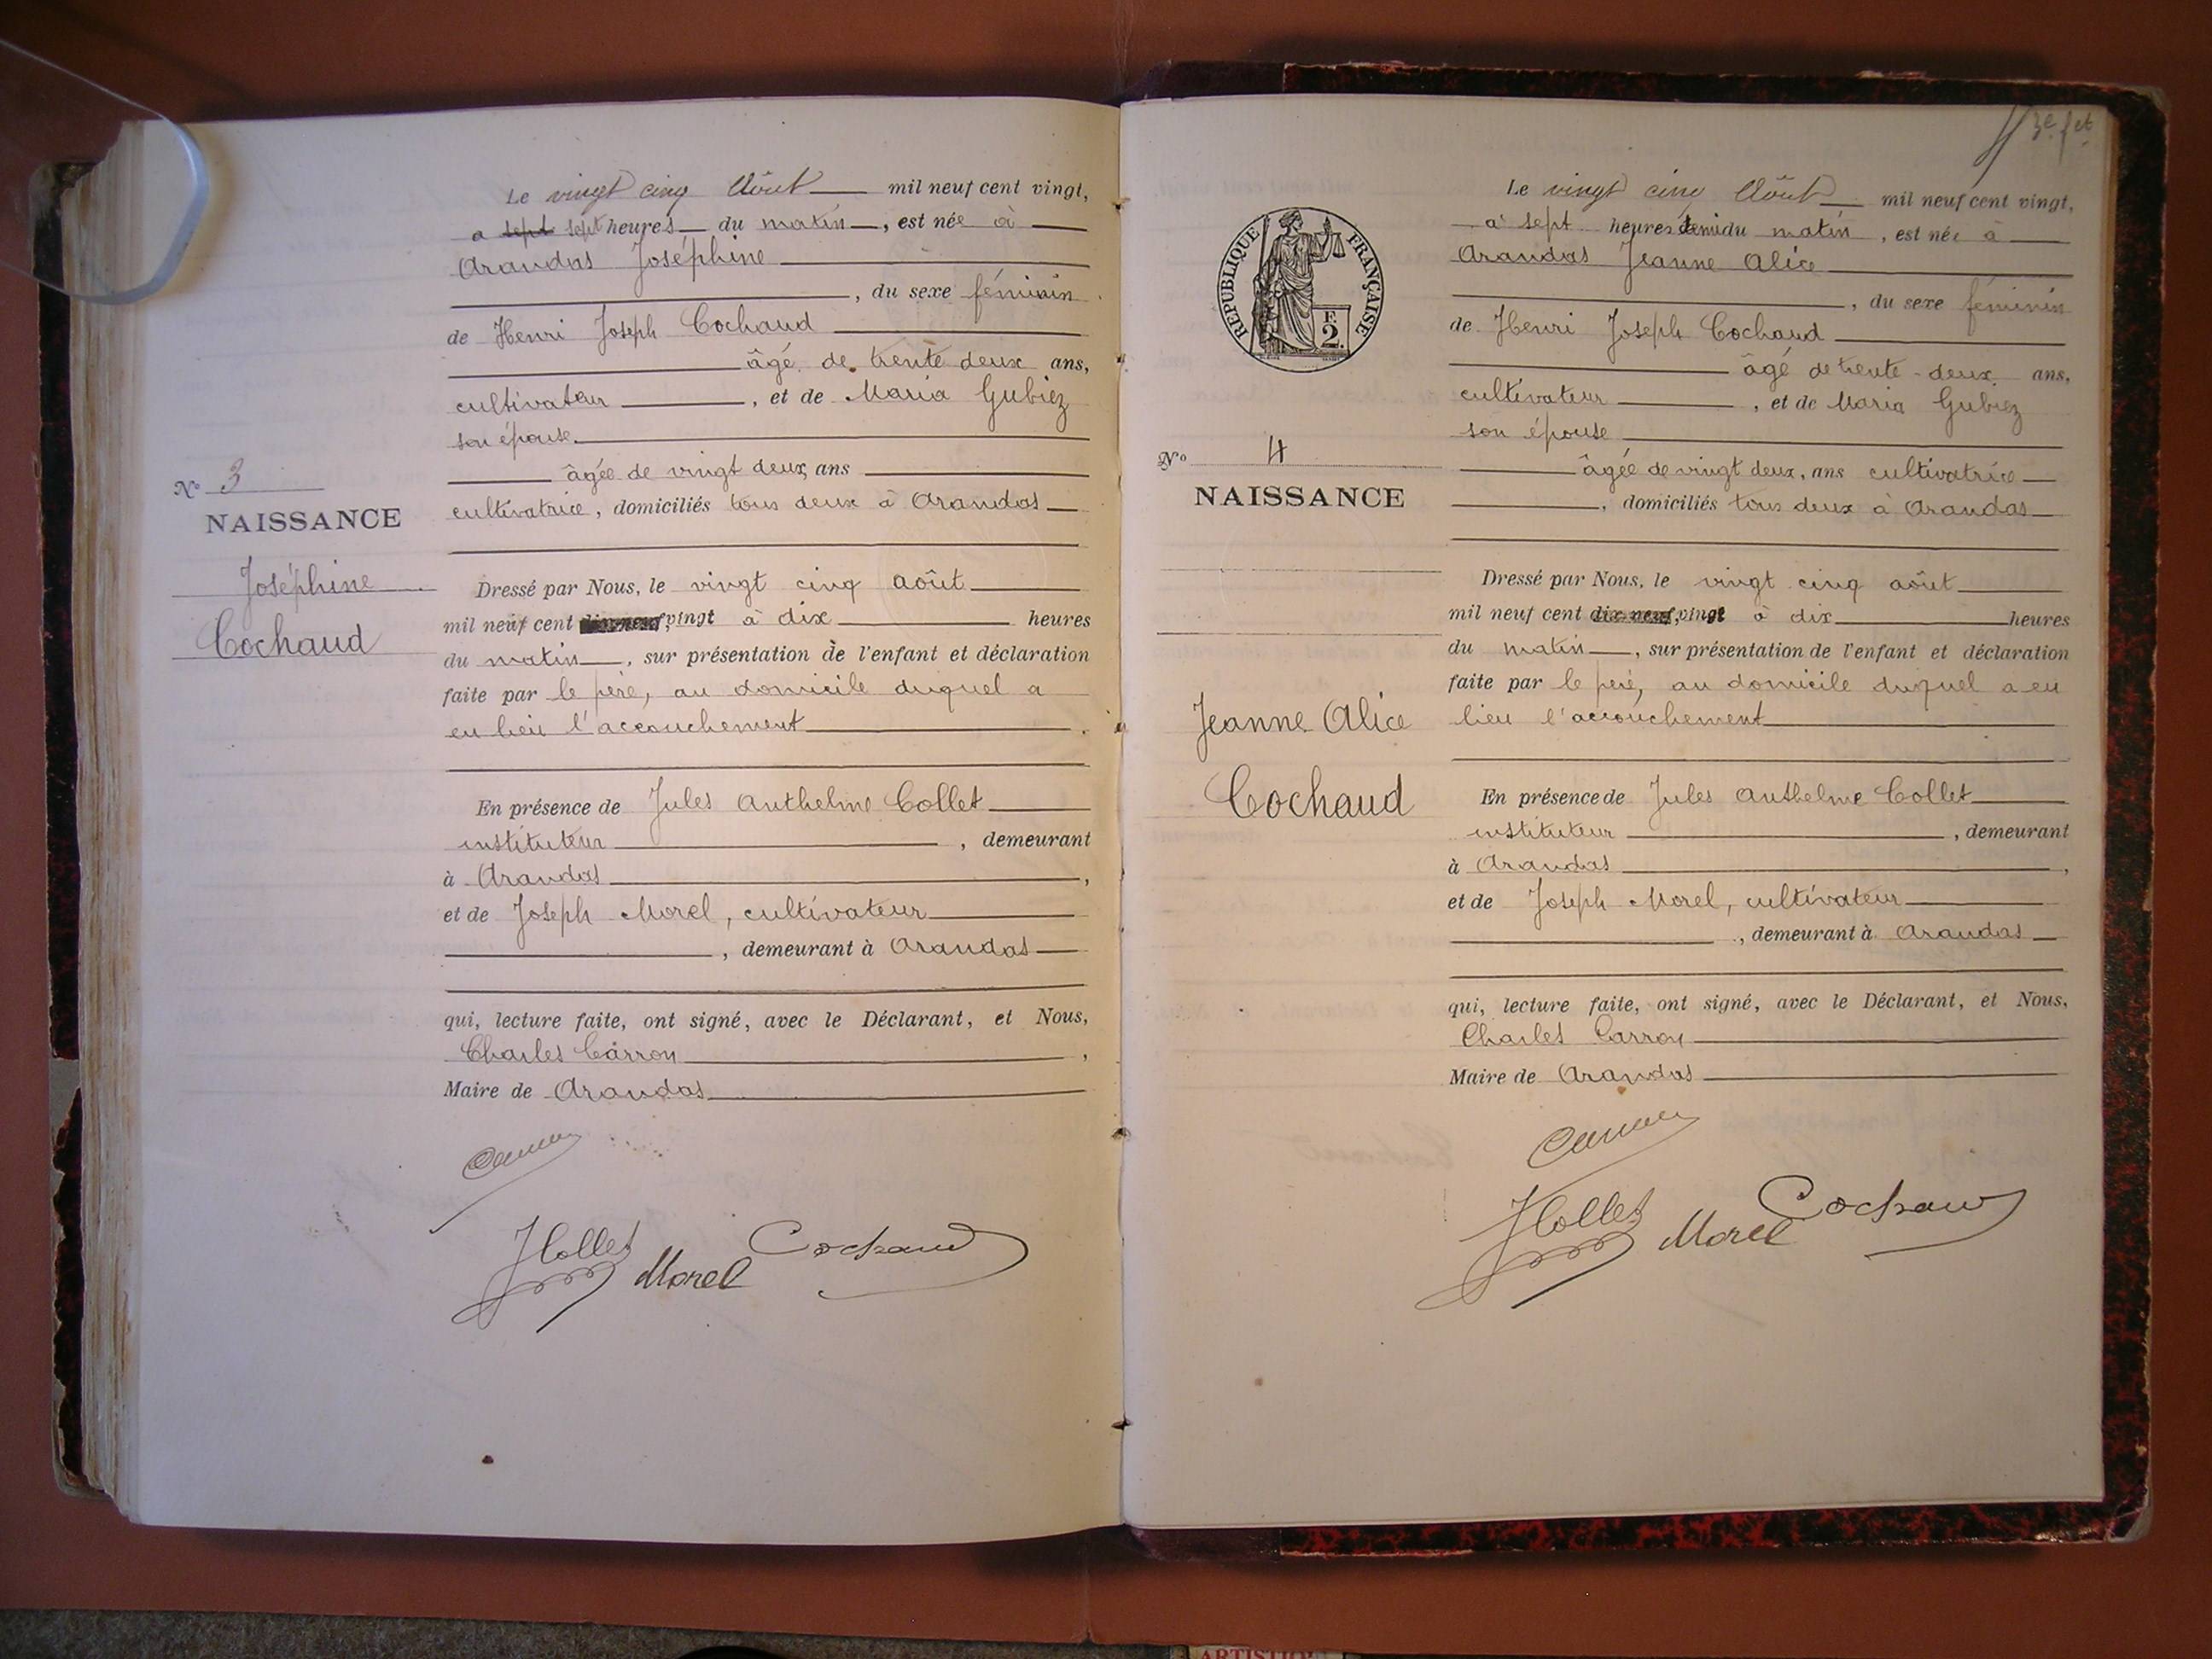 Le vingt cinq Août mil neuf cent vingt,
a sept sept heures du matin, est née à
Arandas Joséphine
, du sexe féminin
de Henri Joseph Cochaud
âgé de trente deux ans,
cultivateur, et de Maria Gubiez
son épouse
âgée de vingt deux, ans
cultivatrice, domiciliés tous deux à Arandas
No 3
NAISSANCE
Joséphine
Cochaud
Dressé par Nous, le vingt cinq août
mil neuf cent dix-neuf, vingt à dix heures
du matin, sur présentation de l'enfant et déclaration
faite par le père, au domicile duquel a
eu lieu l'accouchement.
En présence de Jules Anthelme Collet
instituteur, demeurant
à Arandas,
et de Joseph Morel, cultivateur
, demeurant à Arandas
qui, lecture faite, ont signé, avec le Déclarant, et Nous,
Charles Carron,
Maire de Arandas
JCollet
Morel
Cochaud
3e. fet
Le vingt cinq Août mil neuf cent vingt,
à sept heures demi du matin, est née à
Arandas Jeanne Alice
, du sexe féminin
de Henri Joseph Cochaud
âgé de trente-deux ans,
cultivateur, et de Maria Gubiez
son épouse
âgée de vingt deux, ans cultivatrice
, domiciliés tous deux à Arandas
REPUBLIQUE FRANÇAISE
F.
2.
No 4
NAISSANCE
Jeanne Alice
Cochaud
Dressé par Nous, le vingt cinq août
mil neuf cent dix-neuf, vingt à dix heures
du matin, sur présentation de l'enfant et déclaration
faite par le père, au domicile duquel a eu
lieu l'accouchement
En présence de Jules Anthelme Collet
instituteur, demeurant
à Arandas,
et de Joseph Morel, cultivateur
, demeurant à Arandas
qui, lecture faite, ont signé, avec le Déclarant, et Nous,
Charles Carron
Maire de Arandas
JCollet
Morel
Cochaud